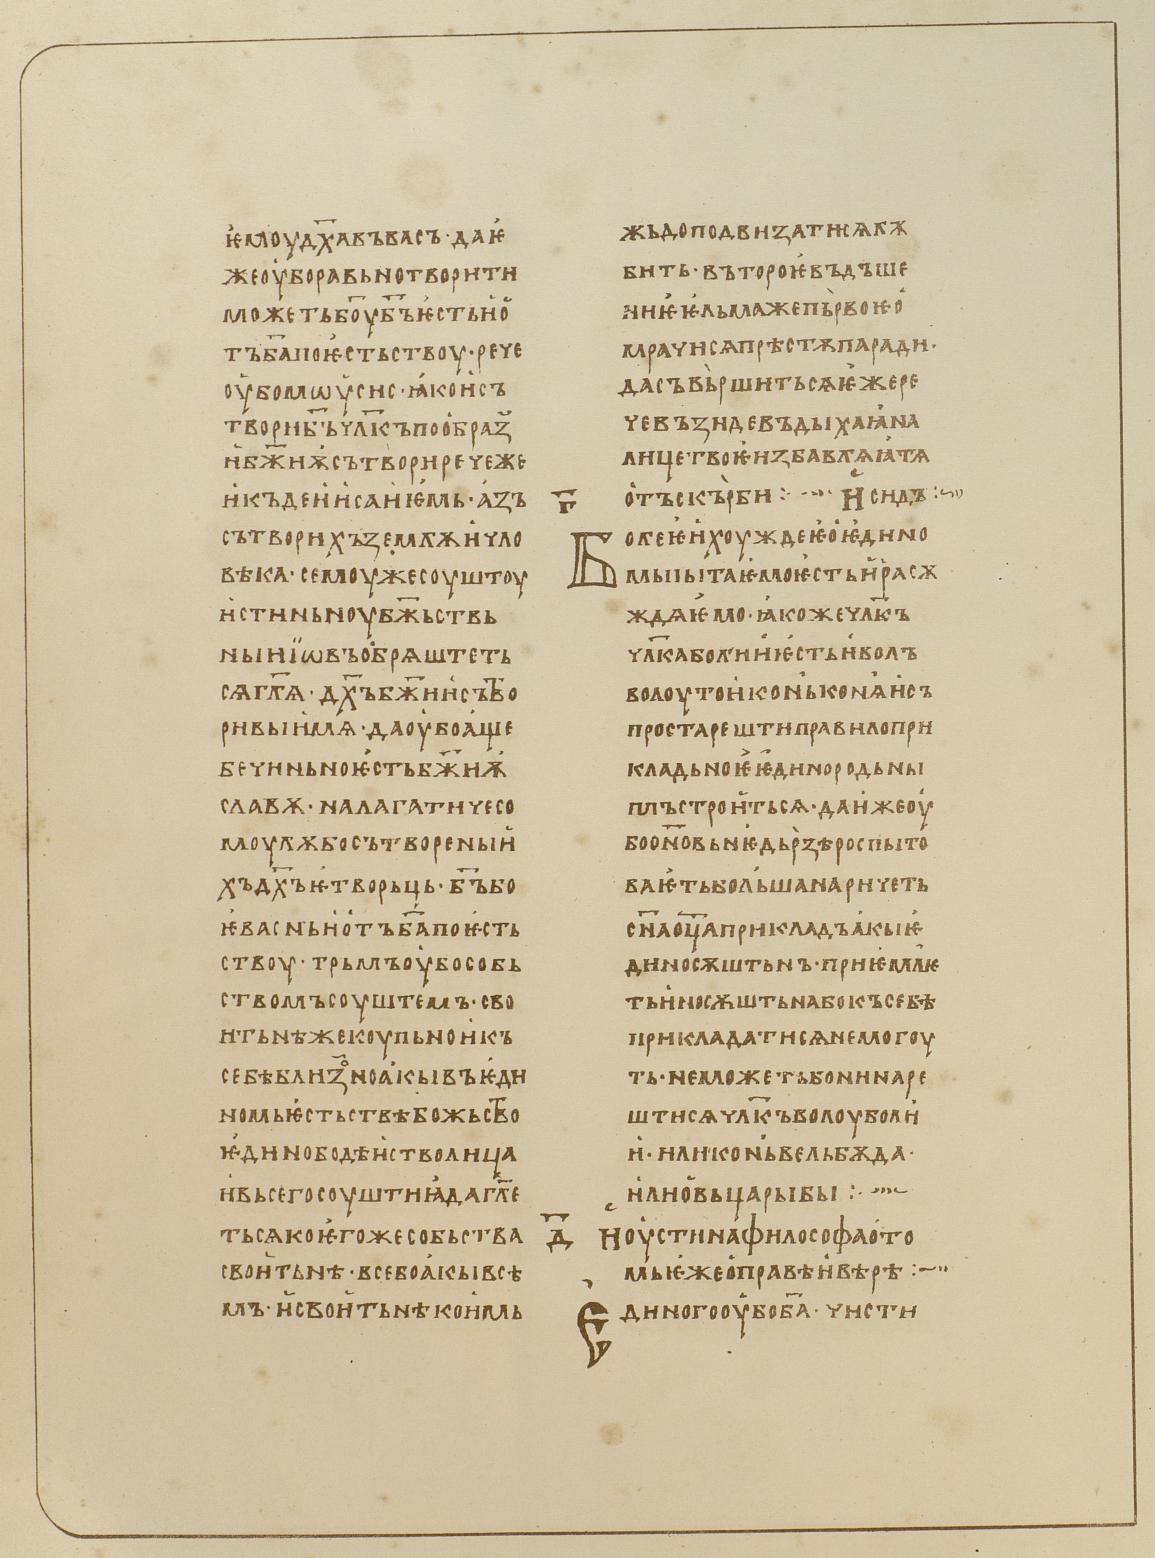 ѥмоу дх҃а въ васъ· да ѥ
же оубо равьно творити
можеть бо҃у б҃ъ ѥсть и о
тъ б҃а по ѥстьствоу· рече
оубо мѡѵсис· ꙗко и съ
твори б҃ъ чл҃къ по образ
и бж҃иѭ сътвори рече же
и къде и исаниѥмь· азъ
сътворихъ землѭ и чло
вѣка· семоу же соуштоу
истиньноу бж҃ьствь
ныи иѡвъ обрѧштеть
сѧ гл҃ѧ· дх҃ъ бж҃ии сътво
ривыи мѧ· да оубо аще
бечиньно ѥсть бж҃иѩ
славѫ· налагати чесо
моулюбо сътвореныи
хъ дх҃ъ ѥ творьць· б҃ъ бо
ѥ васнь и отъ б҃а по ѥсть
ствоу· трьмъ оубо собь
ствомъ соуштемъ· сво
ить нѣ же коупьно и къ
себѣ близно акы въ ѥди
номь ѥстьствѣ божьство
ѥдино бо дѣиство лица
и вьсего соуштиꙗ да гл҃е
ться коѥгоже собьства
своить нѣ· все бо акы всѣ
мъ· и своить нѣкоимь
жьдо подвизати ѩкѫ
бить· въторое въдъше
ниѥ ѥльма же пьрвоѥ о
мрачи сѧ прѣстѫпа ради·
да съвьршить сѧ ѥже ре
че въ зиде въдыхаꙗ на
лице твоѥ избавлѧꙗ тѧ
отъ скърби :~ Исидъ :~
г҃
Болеѥ и хоуждеѥ о ѥдино
мь пытаѥмо ѥсть и расѫ
ждаѥмо· ꙗкоже чл҃къ
чл҃ка болии ѥсть и волъ
волоу то и конь конѧ и съ
простарешти правило при
кладьно ѥ ѥдинородьны
имъ строить сѧ· да иже оу
бо оновьниѥ дьрзѣ роспыто
ваѥть больша наричеть
сн҃а оц҃а прикладъ акы ѥ
диносѫштьнъ· приѥмлѥ
ть иносѫштьна бо къ себѣ
прикладати сѧ не могоу
ть· не можеть бо ни наре
шти сѧ чл҃къ волоу боли
и· или конь вельбѫда·
или овьца рыбы :~
д҃ Иоустина философа о то
мь ѥже о правѣи вѣрѣ :~
Единого оубо б҃а· чисти